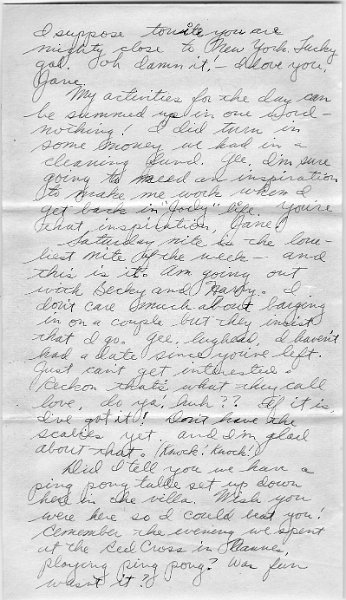 I suppose tonite you are
mighty close to New York. Lucky
gal! Ooh damn it! - I love you,
Jane.
My activities for the day can
be summed up in one word -
nothing! I did turn in
some money we had in a
cleaning fund. Gee, I'm sure
going to need an inspiration
to make me work when I
get back in "Joily" life. You're
that inspiration, Jane!
Saturday nite is the lone-
liest nite of the week - and
this is it. Am going out
with Becky and Harry. I
don't care much about barging
in on a couple but they insist
that I go. Gee, lughead, I haven't
had a date since you've left.
Just can't get interested.
Reckon that's what they call
love, do ya! huh?? If it is,
I've got it! Don't have the
scabies yet, and I'm glad
about that. (Knock! Knock!)
Did I tell you we have a
ping pong table set up down
here in the villa. Wish you
were here so I could beat you!
Remember the evening we spent
at the Red Cross in Cannes,
playing ping pong? Was fun
wasn't it?